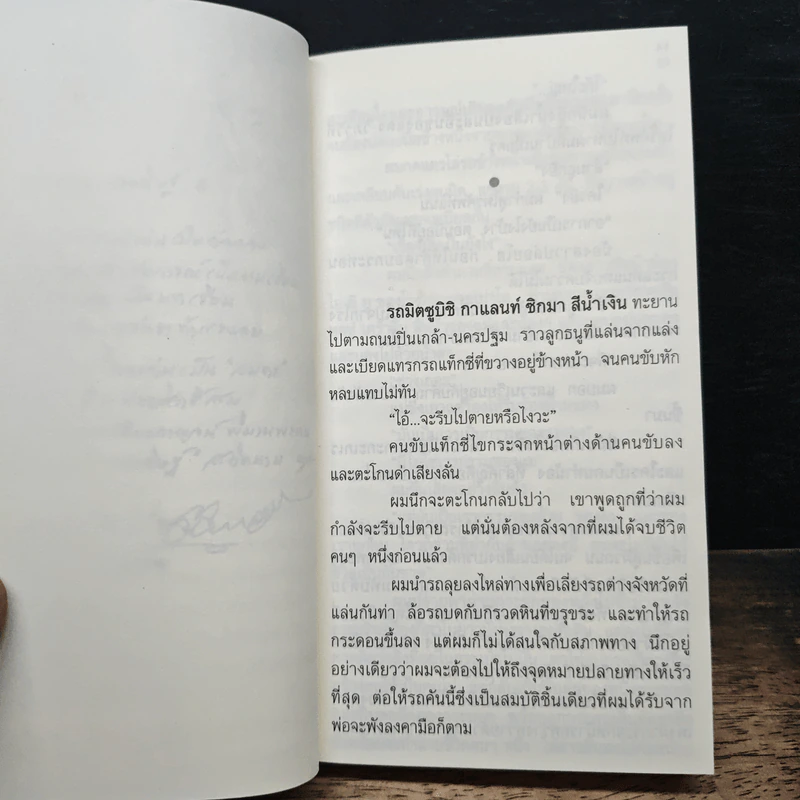 รถมิตซูบิชิ กาแลนท์ ซิกมา สีน้ำเงิน ทะยาน
ไปตามถนนปิ่นเกล้า-นครปฐม ราวลูกธนูที่แล่นจากแล่ง
และเบียดแทรกรถแท็กซี่ที่ขวางอยู่ข้างหน้า จนคนขับหัก
หลบแทบไม่ทัน
“ไอ้...จะรีบไปตายหรือไงวะ”
คนขับแท็กซี่ไขกระจกหน้าต่างด้านคนขับลง
และตะโกนด่าเสียงลั่น
ผมนึกจะตะโกนกลับไปว่า เขาพูดถูกที่ว่าผม
กำลังจะรีบไปตาย แต่นั่นต้องหลังจากที่ผมได้จบชีวิต
คนๆ หนึ่งก่อนแล้ว
ผมนำรถลุยลงไหล่ทางเพื่อเลี่ยงรถต่างจังหวัดที่
แล่นกันท่า ล้อรถบดกับกรวดหินที่ขรุขระ และทำให้รถ
กระดอนขึ้นลง แต่ผมก็ไม่ได้สนใจกับสภาพทาง นึกอยู่
อย่างเดียวว่าผมจะต้องไปให้ถึงจุดหมายปลายทางให้เร็ว
ที่สุด ต่อให้รถคันนี้ซึ่งเป็นสมบัติชิ้นเดียวที่ผมได้รับจาก
พ่อจะพังลงคามือก็ตาม